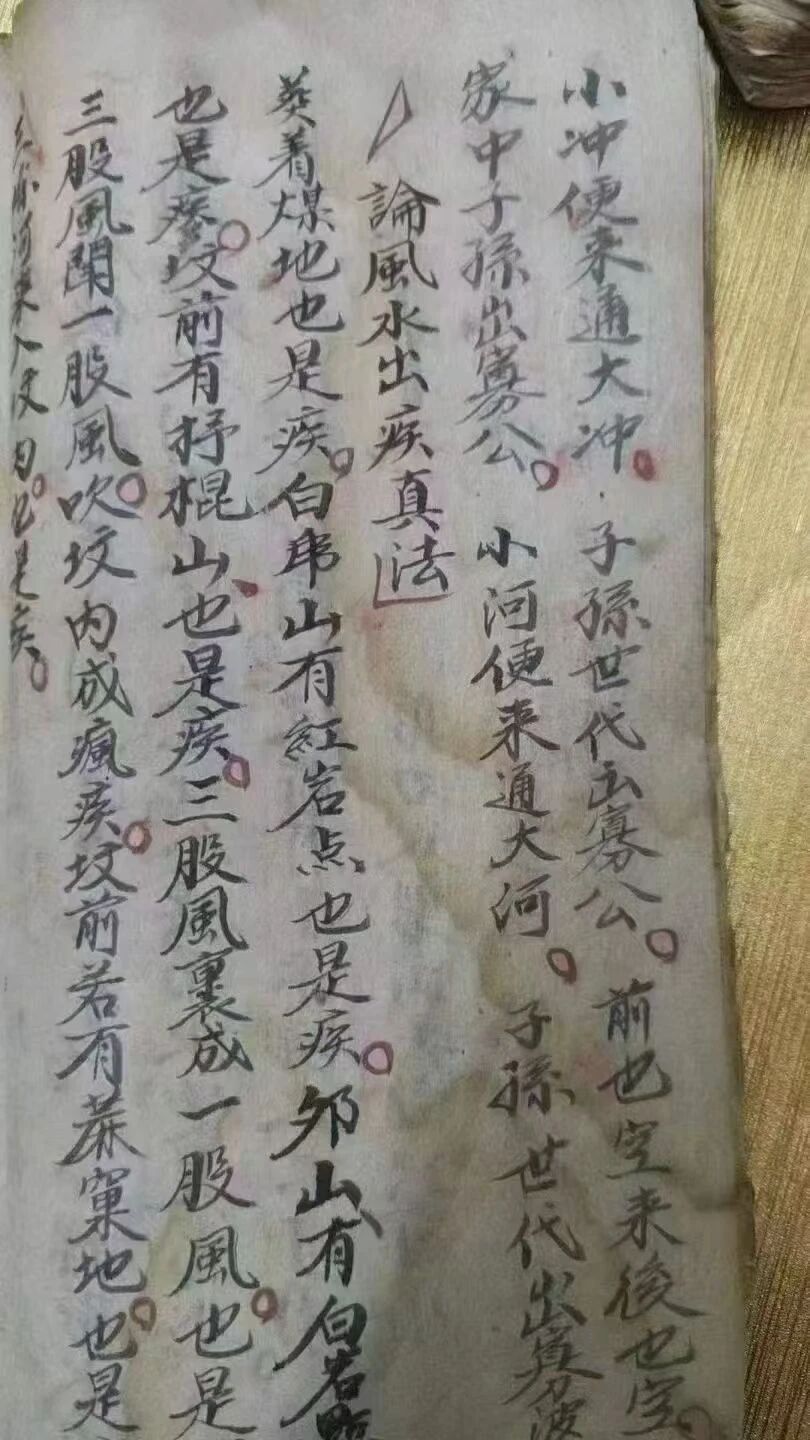 小冲便来通大冲。子孫世代出寡公。前也空来後也空。
家中子孫出寡公。小河便来通大河。子孫世代出寡婆
論風水出疾真法
葵着煤地也是疾。白帍山有紅岩点也是疾。邜山有白岩
也是疾。坟前有抒棍山、也是疾。三股風裏成一股風。也是
三股風閗一股風吹。坟内成瘋疾。坟前若有蔴窠地。也是
坟内。也是疾。